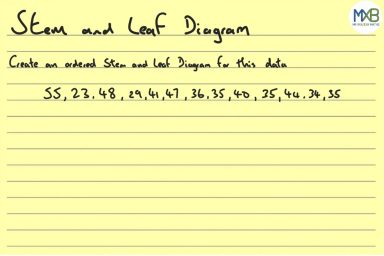 Stem and Leaf Diagram
MXB
Create an ordered Stem and Leaf Diagram for this data
55, 23, 48, 29, 41, 47, 36, 35, 40, 35, 44, 34, 35